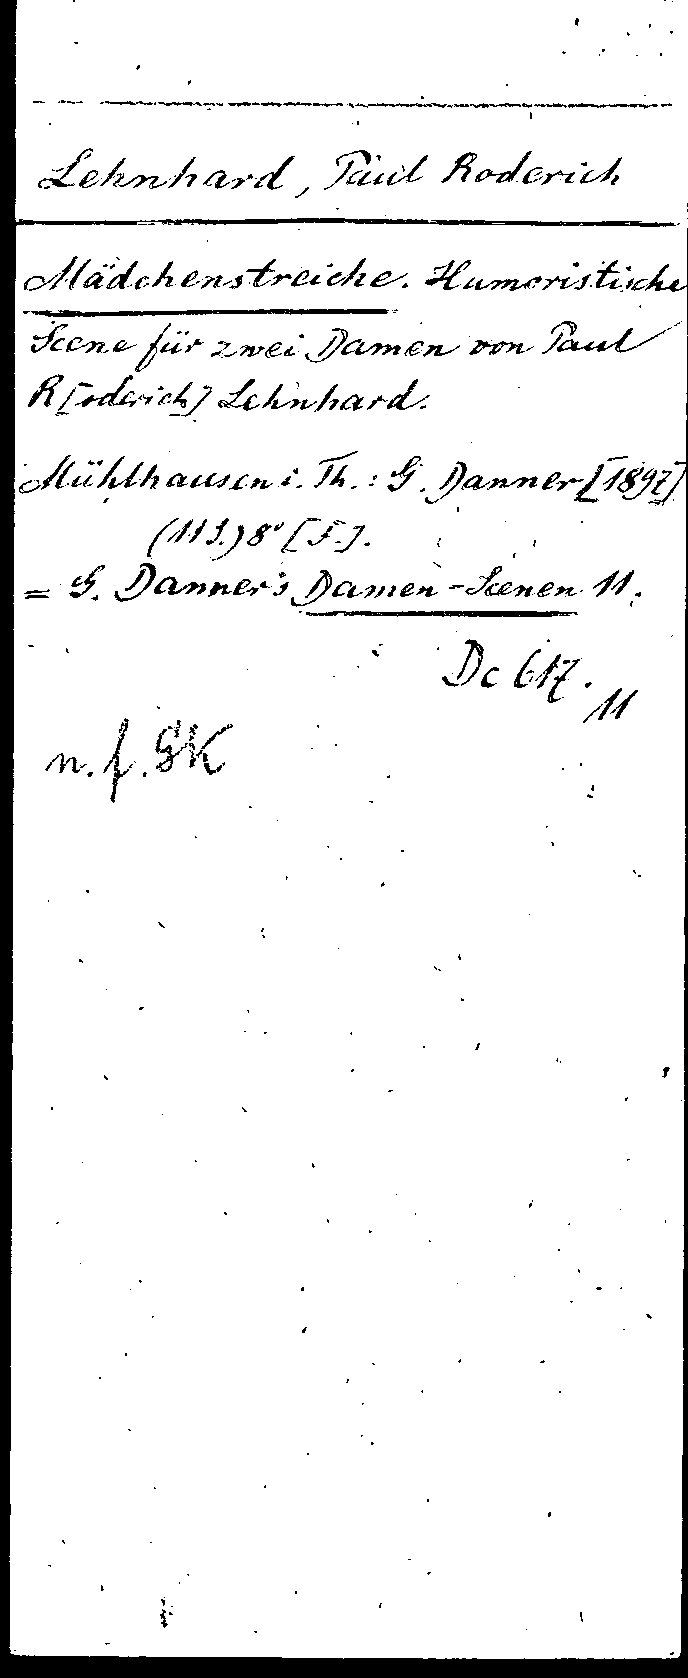 Lehnhard, Paul Roderich
Mädchenstreiche. Humoristische
Scene für zwei Damen von Paul
R[oderich] Lehnhard.
Mühlhausen i. Th.: G. Danner [1897]
(11 S.) 8° [F.].
= G. Danner's Damen-Scenen 11.
Dc 617.
11
n. f. GK